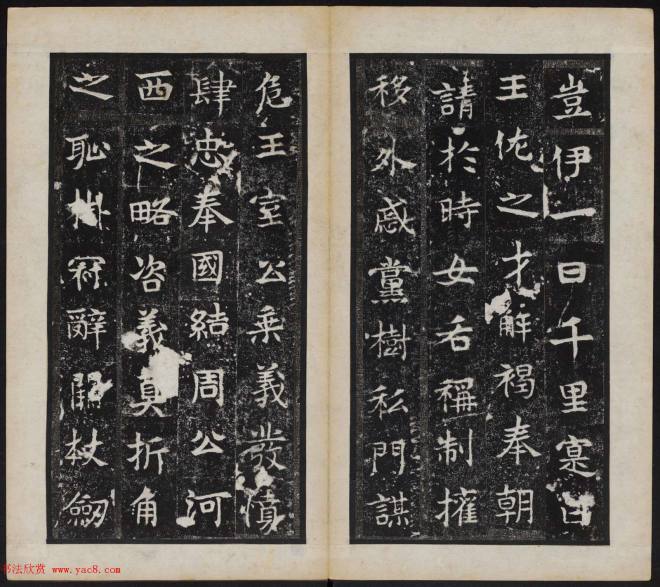 豈伊一日千里寔曰
王佐之才解褐奉朝
請於時女后稱制擁
移外戚黨樹私門謀
危王室公乘義發憤
肆忠奉國結周公河
西之略咨義真折角
之恥掛冠辭闕杖劒
书法欣赏 www.yac8.com